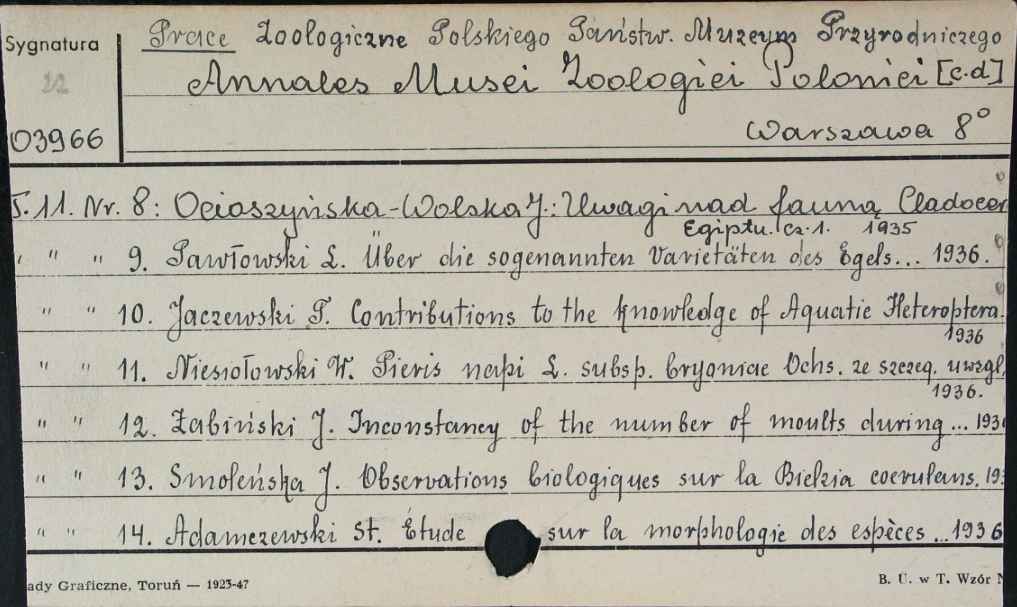 Sygnatura
Prace Zoologiczne Polskiego Państw. Muzeum Przyrodniczego
22
Annales Musei Zoologiei Poloniei [c.d]
O3966
Warszawa 8°
T. 11. Nr. 8: Ocioszyńska-Wolska J.: Uwagi nad fauną Cladocer
Egiptu. cz. 1. 1935
" " " 9. Pawłowski L. Über die sogenannten Varietäten des Egels... 1936.
" " 10. Jaczewski T. Contributions to the knowledge of Aquatic Heteroptera.
1936
" " 11. Niesiołowski W. Pieris napi L. subsp. bryoniae Ochs. ze szczeg. uwzgl.
1936.
" " 12. Żabiński J. Inconstancy of the number of moults during ... 193
" " 13. Smoleńska J. Observations biologiques sur la Bielzia coerulans. 19
" " 14. Adamczewski St. Étude sur la morphologie des espèces ... 1936
ady Graficzne, Toruń — 1923-47
B. U. w T. Wzór N